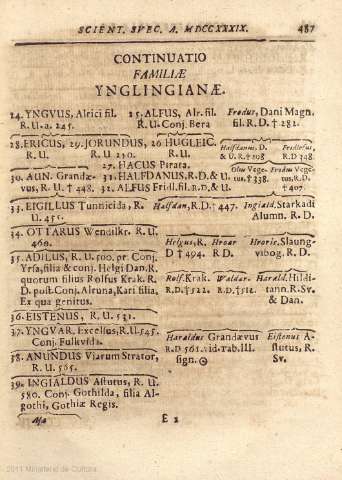 SCIENT. SVEC. A. MDCCXXXIX. 487
CONTINUATIO
FAMILIÆ
YNGLINGIANÆ.
24. YNGVUS, Alrici fil. 25. ALFUS, Alr. fil. Frodus, Dani Magn.
R. U. a. 245. R. U. Conj. Bera fil. R. D. † 281.
28. ERICUS, 29. JORUNDUS, 26 HUGLEIC. Halfdanus, D. Fridlefus,
R. U. R. U 250. R. U & U. R † 308 R. D 348.
27. HACUS Pirata.
30. AUN. Grandæ- 31. HALFDANUS, R. D. & U. Olus Vege- Frodus Vege-
vus, R. U † 448. 32. ALFUS Fridl. fil. R. D. & U tus, R. D † 338. tus, R. D
† 407.
33. EIGILLUS Tunnicida, R. Halfdan, R. D † 447. Ingiald, Starkadi
U. 455. Alumn. R. D.
34. OTTARUS Wendilkr. R. U. Helgus, R. Hroar Hroric, Slaung-
460. D † 494. R. D. vibog. R. D.
35. ADILUS, R. U. 500. pr. Conj.
Yrsa, filia & conj. Helgi Dan. R. Rolf. Krak. Waldar. Harald. Hildi-
quorum filius Rolfus Krak. R. R. D. † 522. R. D † 512. tann. R. Sv.
D. post. Conj. Alruna, Kari filia, & Dan.
Ex qua genitus.
36. EISTENUS, R. U. 531.
37. YNGVAR. Excelsus, R. U. 545. Haraldus Grandævus Eistenus A-
Conj. Fulkvida. R. D 561. vid. Tab. III. stutus, R.
38. ANUNDUS Viarum Strator, sign. ☉ Sv.
R. U. 565.
39. INGIALDUS Astutus, R. U.
580. Conj. Gothilda, filia Al-
gothi, Gothiæ Regis.
E 2
2011 Ministerio de Cultura